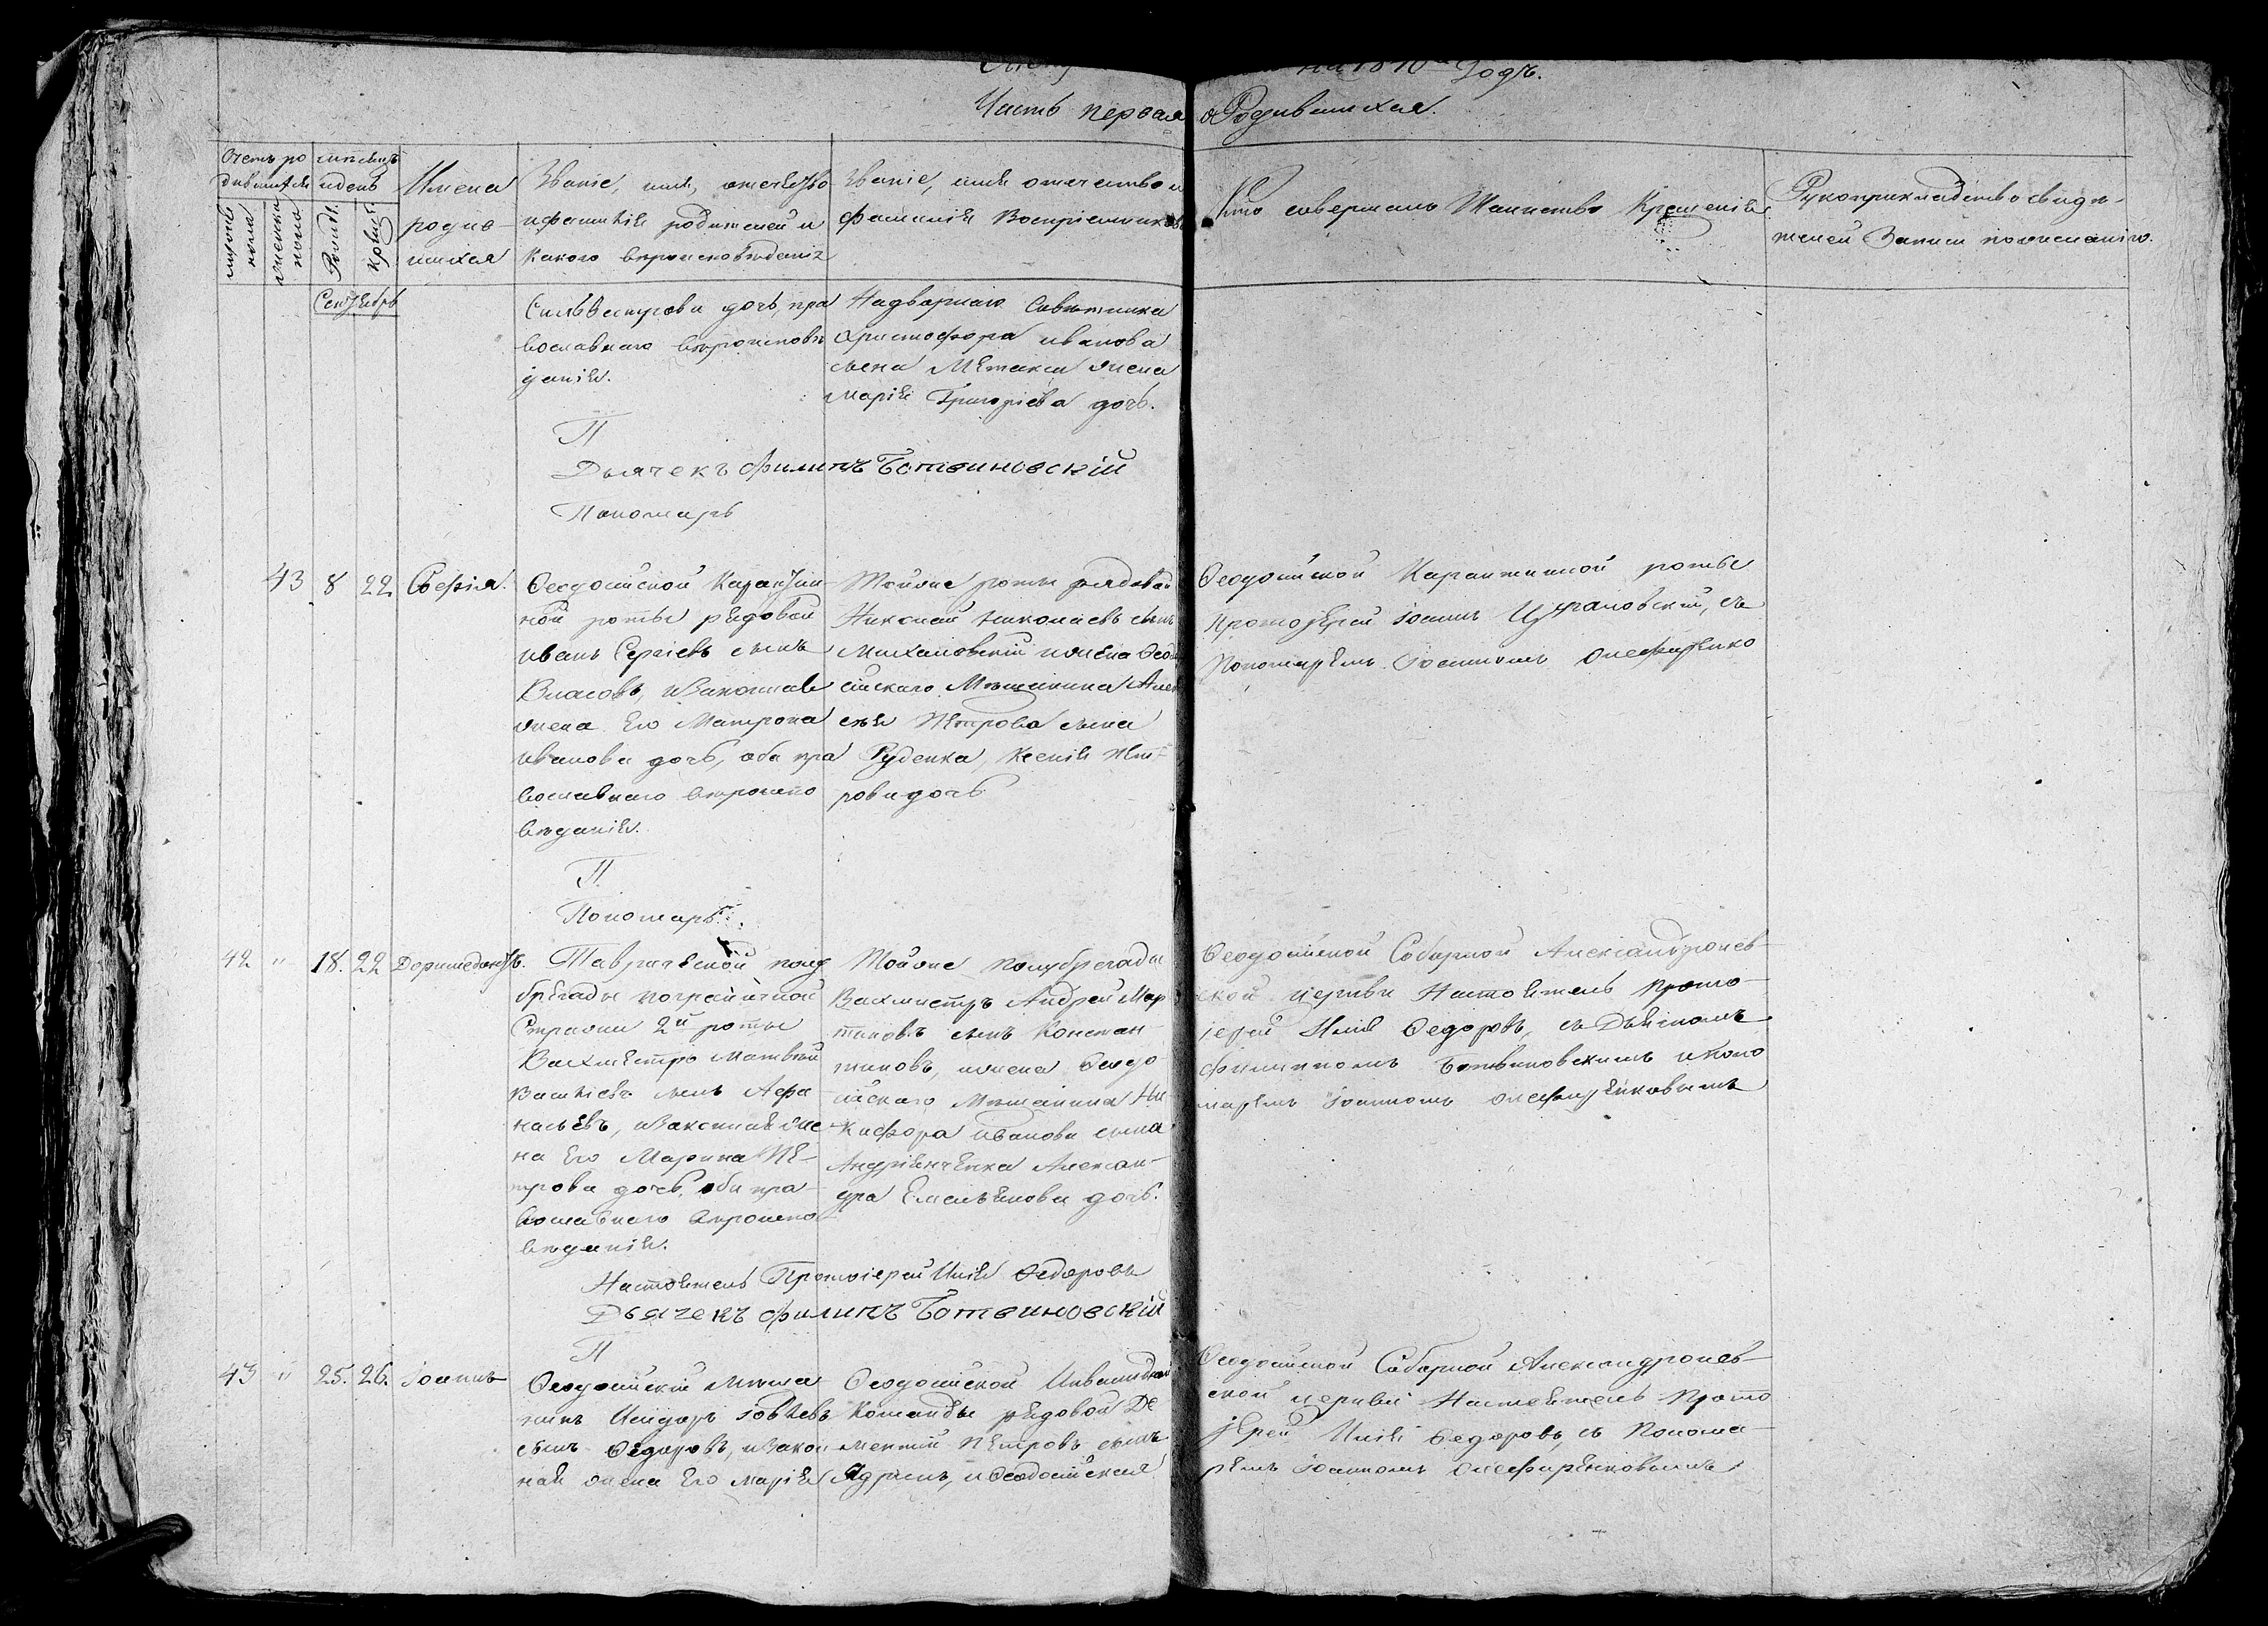 на 1840 Годъ.
Часть первая о Родившихся.
Счетъ ро
дившихся
мужеска
пола
женска
пола
мѣсяцъ
и день
Рожд.
крещ.
Имена
родив-
шихся
Званіе, имя, отечество
и фамилія родителей и
какого вѣроисповѣданія
Званіе, имя отечество и
фамилія Воспріемниковъ
Кто совершалъ Таинство Крещенія
Рукоприкладство свидѣ-
телей Записи по желанію.
Сентябрь
Сильвестрова дочь, пра
вославнаго вѣроисповѣ
данія.
Надворнаго Совѣтника
Христофора иванова
сына Метакси жена
Марія Григоріева дочь.
П
Дьячекъ Филипъ Ботвиновскій
Пономарь
43 8 22 Софія.
Феодосійской Карантин-
ной роты рядовой
иванъ Сергіевъ сынъ
Власовъ, и Законная
жена Его Матрона
иванова дочь, оба пра
вославнаго вѣроиспо
вѣданія.
Тойже роты рядовой
Николай николаевъ сынъ
Михайловскій и жена Феодо
сійскаго Мѣщанина Алек
сѣя Петрова сына
Руденка, Ксенія Пет-
рова дочь
Феодосійской Карантинной роты
Протоіерей Іоаннъ Цѣхановскій, съ
Пономаремъ Іоанномъ Олефиренко
П
Пономарь
42 " 18. 22 Доримедонтъ.
Таврической полу
бригады пограничной
Стражи 2й роты
Вахмистръ Матвей
Василіевъ сынъ Афа
насьевъ, и Законная же
на Его Марина Пе-
трова дочь, оба пра-
вославнаго вѣроиспо
вѣданія.
Тойже полубригады
Вахмистръ Андрей Мар
тиновъ сынъ Констан-
тиновъ, и жена Феодо-
сійскаго Мѣщанина Ни-
кифора иванова сына
Андріенченка Алексан-
дра Емельянова дочь.
Феодосійской Соборной Александроnев-
ской церкви Настоятель Прото-
іерей Илія Федоровъ, съ Дьячкомъ
Филиппомъ Ботвиновскимъ и Поно
маремъ Іоанномъ Олефиренковымъ
Настоятель Протоіерей Илія Федоровъ
Дьячекъ Филипъ Ботвиновскій
П
43 " 25. 26. Іоаннъ
Феодосійскій Мѣща-
нинъ Исидоръ Іовлевъ
сынъ Федоровъ, и Закон
ная жена Его Марія
Феодосійской Инвалидной
Команды рядовой Де
ментій Петровъ сынъ
Ядринъ, и Феодосійская
Феодосійской Соборной Александроnев-
ской церкви Настоятель Прото
іерей Илія Федоровъ, съ Понома-
ремъ Іоанномъ Олефиренковымъ